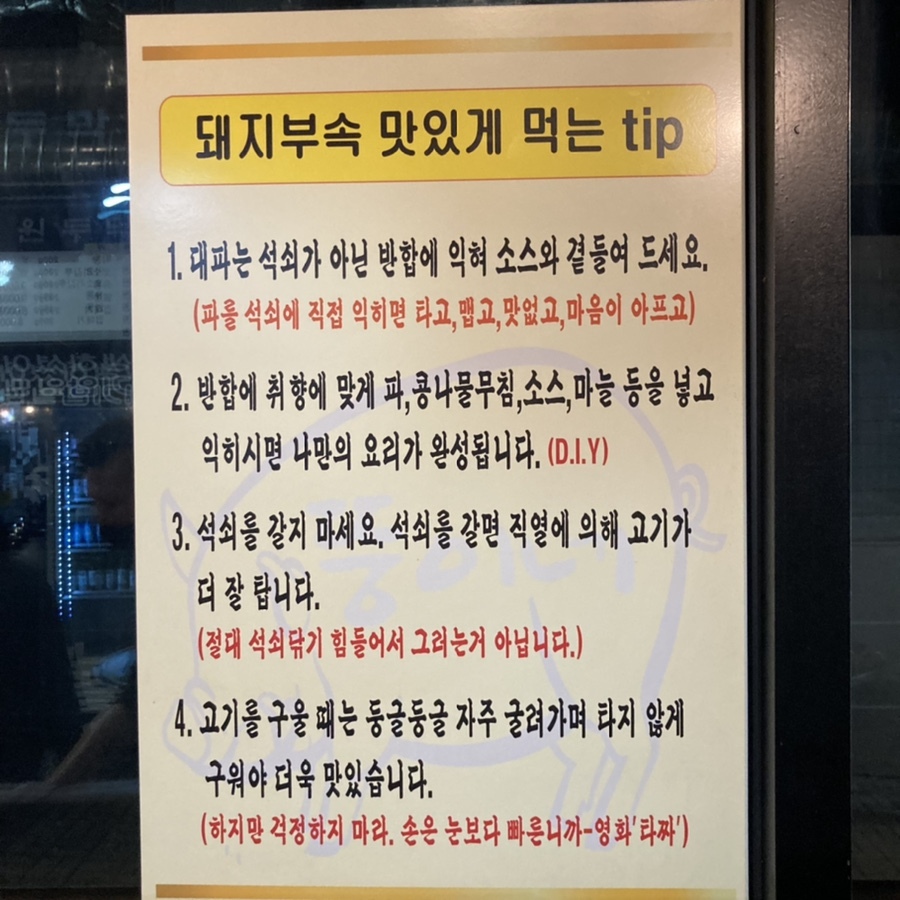 돼지부속 맛있게 먹는 tip
1. 대파는 석쇠가 아닌 반합에 익혀 소스와 곁들여 드세요.
(파를 석쇠에 직접 익히면 타고,맵고,맛없고,마음이 아프고)
2. 반합에 취향에 맞게 파,콩나물무침,소스,마늘 등을 넣고
익히시면 나만의 요리가 완성됩니다. (D.I.Y)
3. 석쇠를 갈지 마세요. 석쇠를 갈면 직열에 의해 고기가
더 잘 탑니다.
(절대 석쇠닦기 힘들어서 그러는거 아닙니다.)
4. 고기를 구울 때는 둥글둥글 자주 굴려가며 타지 않게
구워야 더욱 맛있습니다.
(하지만 걱정하지 마라. 손은 눈보다 빠른니까-영화'타짜')